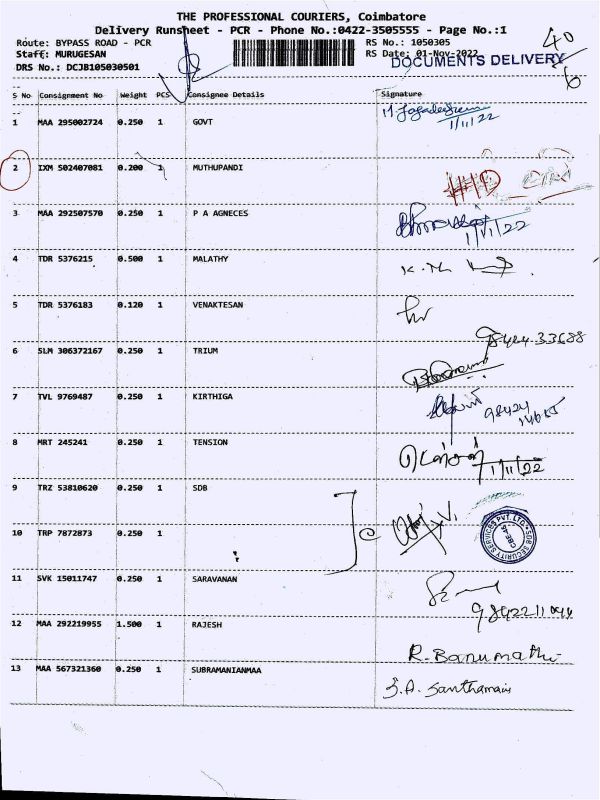 THE PROFESSIONAL COURIERS, Coimbatore
Delivery Runsheet - PCR - Phone No.:0422-3505555 - Page No.:1
Route: BYPASS ROAD - PCR RS No.: 1050305
Staff: MURUGESAN RS Date: 01-Nov-2022
DRS No.: DCJB105030501 DOCUMENTS DELIVERY 40
6
S No Consignment No Weight PCS Consignee Details Signature
1 MAA 295002724 0.250 1 GOVT
1/11/22
2 IXM 502407081 0.200 1 MUTHUPANDI
3 MAA 292507570 0.250 1 P A AGNECES
1/11/22
4 TDR 5376215 0.500 1 MALATHY
5 TDR 5376183 0.120 1 VENAKTESAN
98424 33688
6 SLM 306372167 0.250 1 TRIUM
7 TVL 9769487 0.250 1 KIRTHIGA
98424
8 MRT 245241 0.250 1 TENSION
1/11/22
9 TRZ 53810620 0.250 1 SDB
SDB SECURITY SERVICES PVT. LTD.
10 TRP 7872873 0.250 1
11 SVK 15011747 0.250 1 SARAVANAN
12 MAA 292219955 1.500 1 RAJESH
R. Banumathi
13 MAA 567321360 0.250 1 SUBRAMANIANMAA